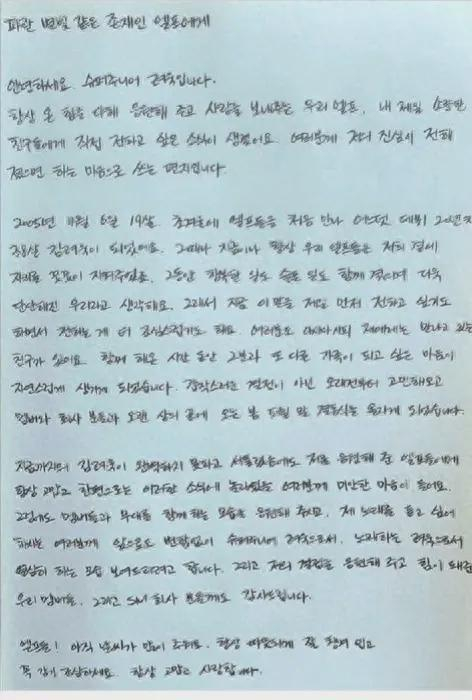 파란 별빛 같은 존재인 엘프에게
안녕하세요. 슈퍼주니어 려욱입니다.
항상 온 힘을 다해 응원해 주고 사랑을 보내주는 우리 엘프, 내 제일 소중한
친구들에게 직접 전하고 싶은 소식이 생겼어요. 여러분께 저의 진심이 전해
졌으면 하는 마음으로 쓰는 편지입니다.
2005년 11월 6일 19살. 초겨울에 엘프들을 처음 만나 어느덧 데뷔 20년차
38살 김려욱이 되었어요. 그때나 지금이나 항상 우리 엘프들은 저희 곁에
자리를 꼿꼿이 지켜주었죠. 그동안 행복한 일도 슬픈 일도 함께 겪으며 더욱
단단해진 우리라고 생각해요. 그래서 지금 이 말을 제일 먼저 전하고 싶기도
하면서 전하는 게 더 조심스럽기도 해요. 여러분도 아시다시피 저에게는 만나고 있는
친구가 있어요. 함께 해온 시간 동안 그분과 또 다른 가족이 되고 싶은 마음이
자연스럽게 생기게 되었습니다. 갑작스러운 결정이 아닌 오래전부터 고민해오고
멤버와 회사 분들과 오랜 상의 끝에 오는 봄 5월 말 결혼식을 올리게 되었습니다.
지금까지의 김려욱이 완벽하지 못하고 서툴렀음에도 저를 응원해 준 엘프들에게
항상 고맙고 한편으로는 이러한 소식에 놀라웠을 여러분께 미안한 마음이 들어요.
그럼에도 멤버들과 무대를 함께 하는 모습을 응원해 주시고, 제 노래를 듣고 싶어
하시는 여러분께 앞으로도 변함없이 슈퍼주니어 려욱으로서, 노래하는 려욱으로서
열심히 하는 모습 보여드리려고 합니다. 그리고 저의 결정을 응원해 주고 힘이 돼준
우리 멤버들, 그리고 SM 회사 분들께도 감사드립니다.
엘프들! 아직 날씨가 많이 추워요. 항상 따뜻하게 잘 챙겨 입고
꼭 감기 조심하세요. 항상 고맙고 사랑합니다.